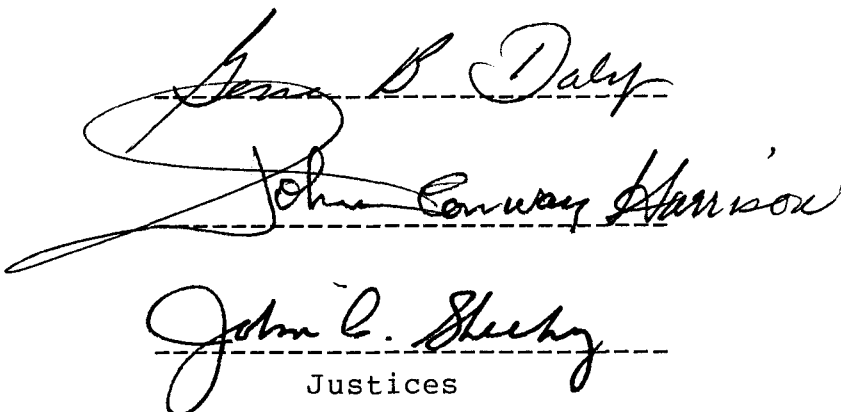 Gene B Daly
John Conway Harrison
John C. Sheehy
Justices